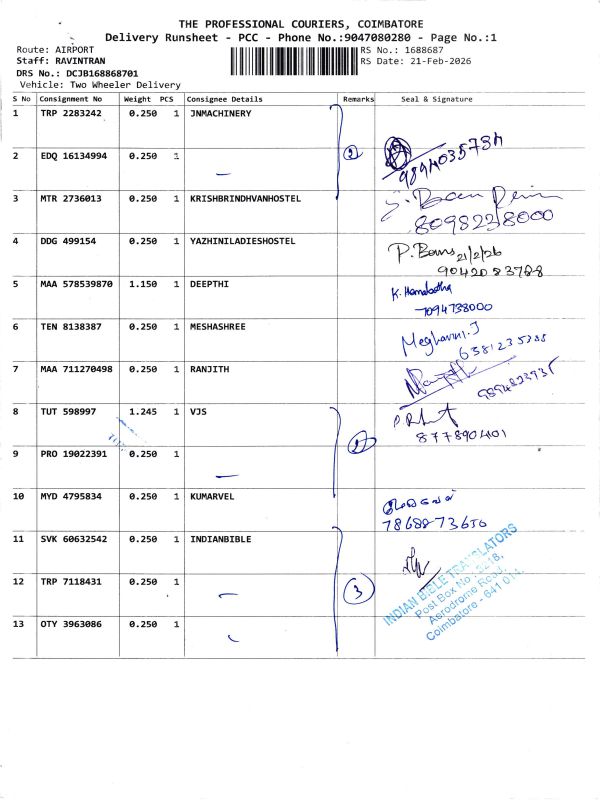 THE PROFESSIONAL COURIERS, COIMBATORE
Delivery Runsheet - PCC - Phone No.:9047080280 - Page No.:1
Route: AIRPORT RS No.: 1688687
Staff: RAVINTRAN RS Date: 21-Feb-2026
DRS No.: DCJB168868701
Vehicle: Two Wheeler Delivery
S No Consignment No Weight PCS Consignee Details Remarks Seal & Signature
1 TRP 2283242 0.250 1 JNMACHINERY
2 EDQ 16134994 0.250 1 2 9894035734
3 MTR 2736013 0.250 1 KRISHBRINDHVANHOSTEL
8098238000
4 DDG 499154 0.250 1 YAZHINILADIESHOSTEL 21/2/26
9042083788
5 MAA 578539870 1.150 1 DEEPTHI
7094738000
6 TEN 8138387 0.250 1 MESHASHREE
7 MAA 711270498 0.250 1 RANJITH
8 TUT 598997 1.245 1 VJS
8778904101
9 PRO 19022391 0.250 1
10 MYD 4795834 0.250 1 KUMARVEL
7868873650
11 SVK 60632542 0.250 1 INDIANBIBLE
12 TRP 7118431 0.250 1 3
13 OTY 3963086 0.250 1
INDIAN BIBLE TRANSLATORS
Post Box No : 3218,
Aerodrome Road,
Coimbatore - 641 014.